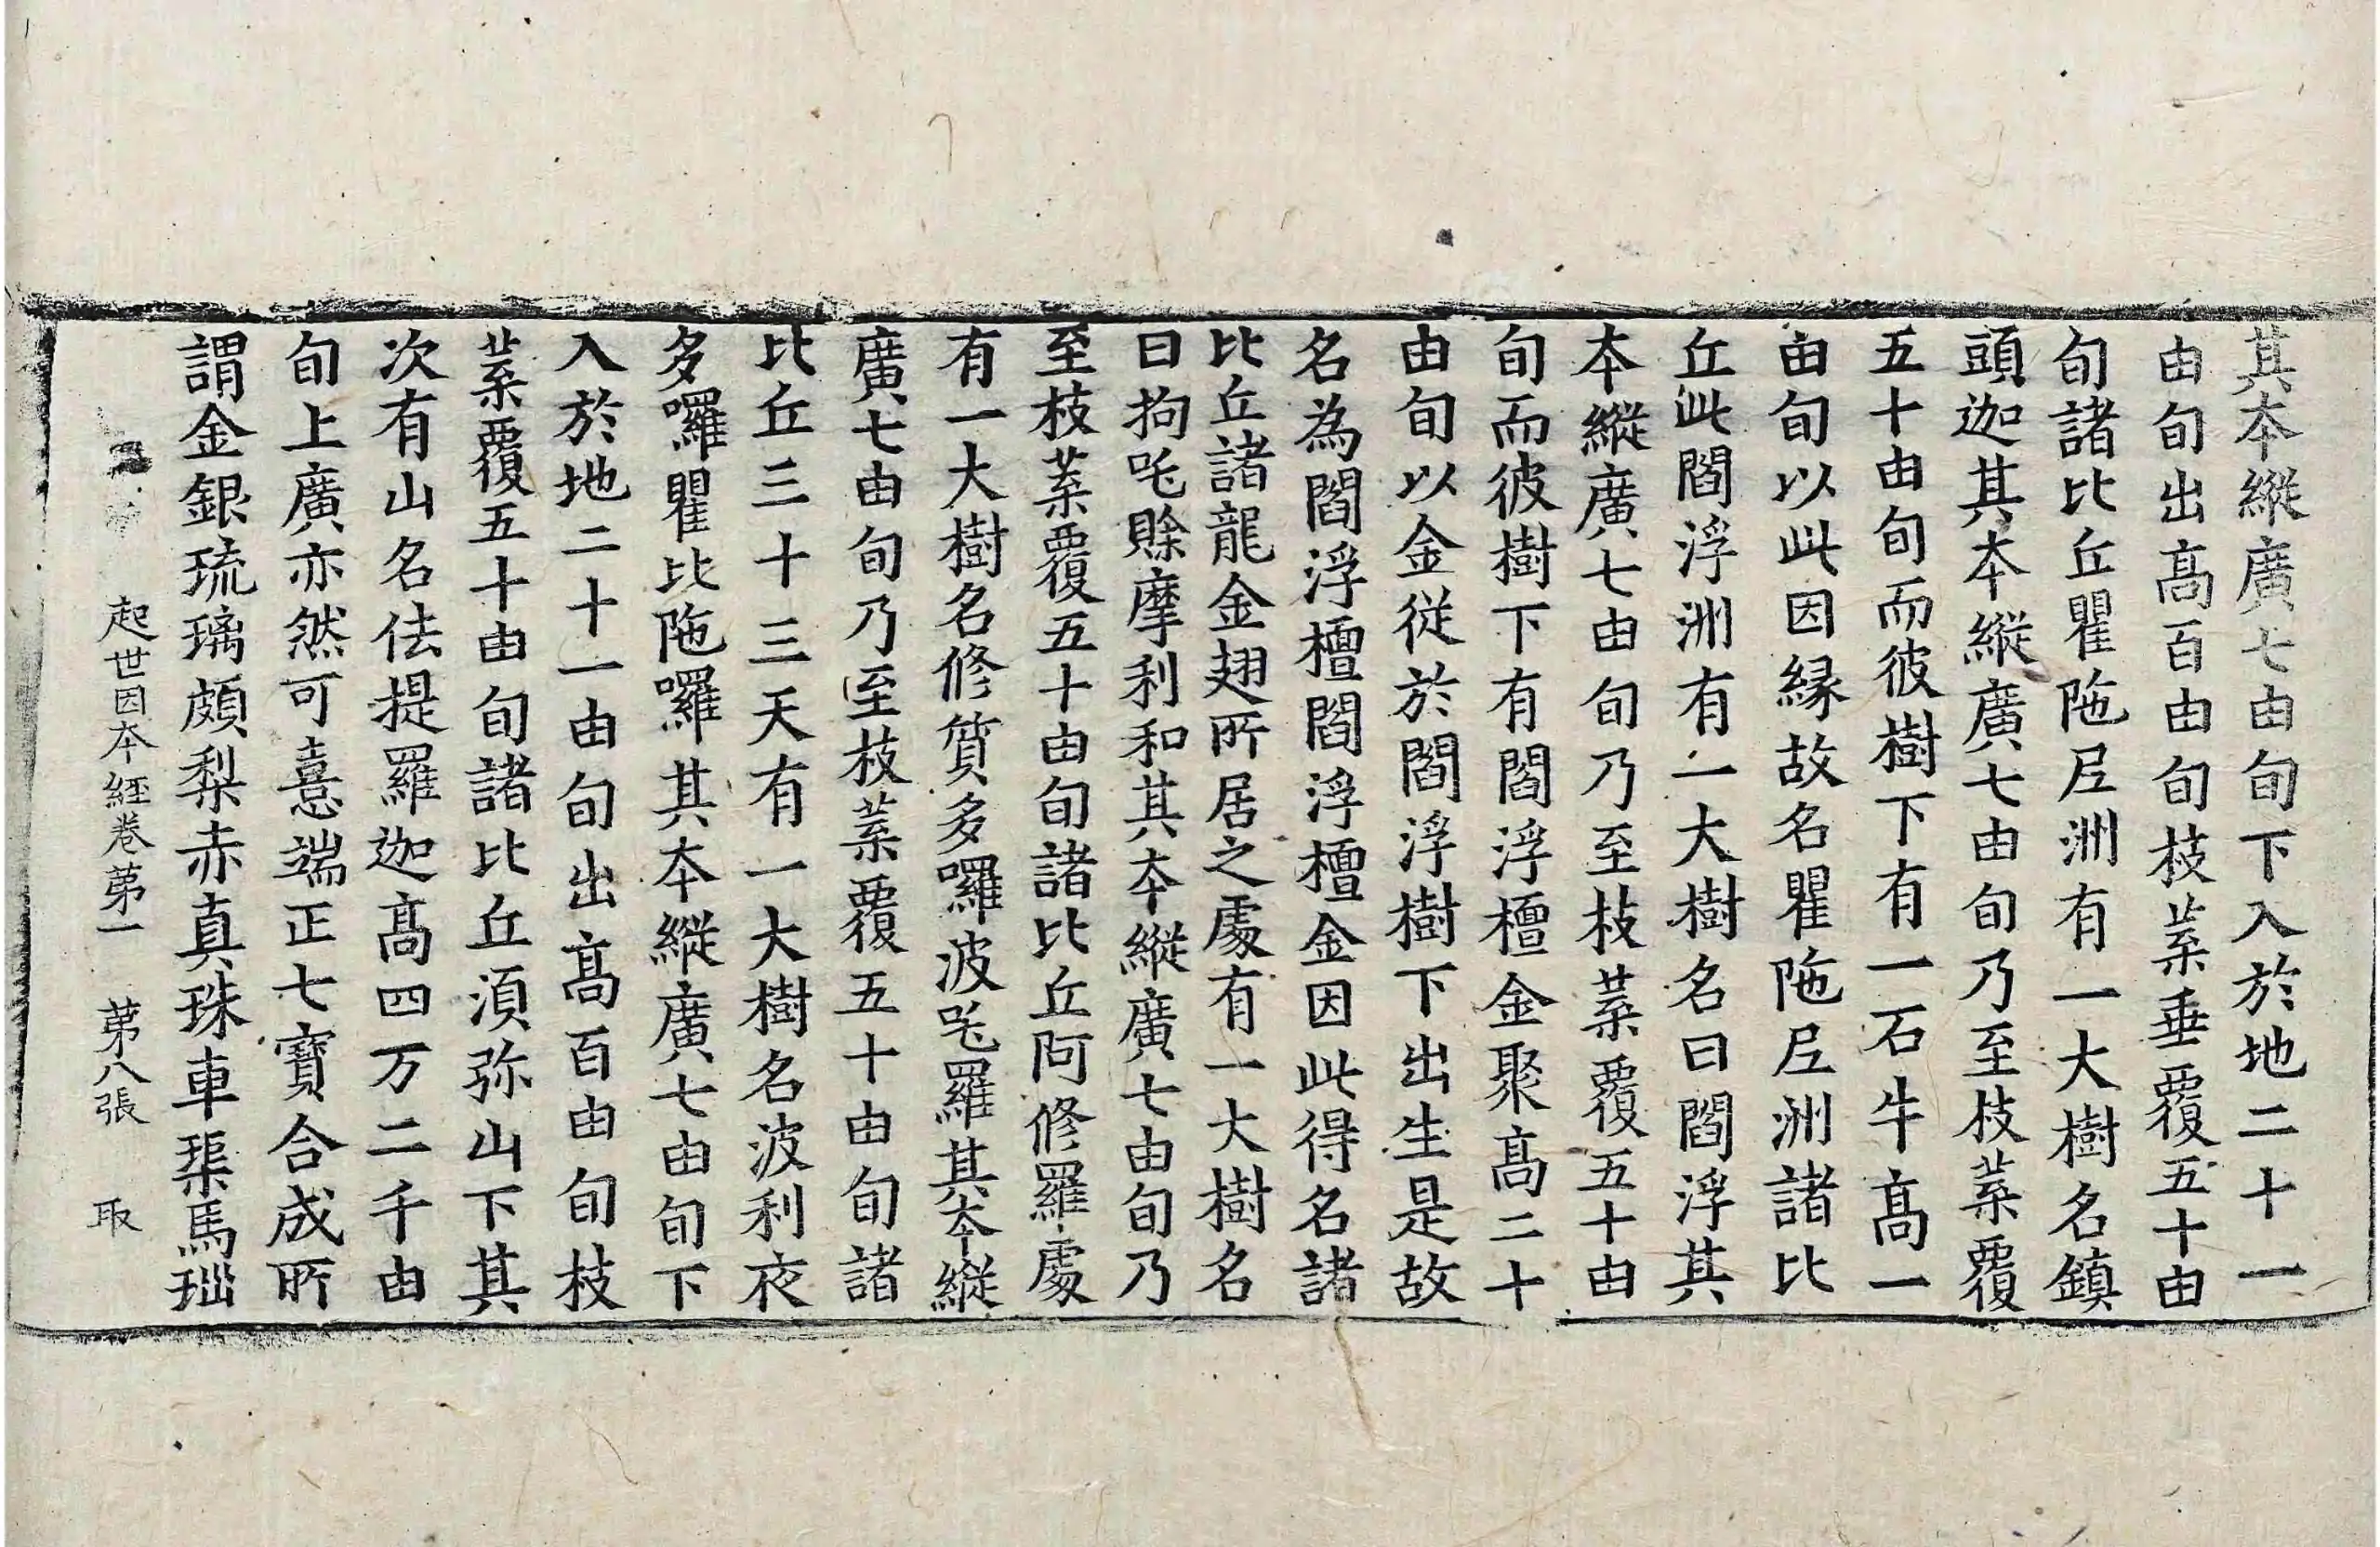 其本縱廣七由旬下入於地二十一
由旬出髙百由旬枝葉垂覆五十由
旬諸比丘瞿陁尼洲有一大樹名鎮
頭迦其本縱廣七由旬乃至枝葉覆
五十由旬而彼樹下有一石牛髙一
由旬以此因緣故名瞿陁尼洲諸比
丘此閻浮洲有一大樹名曰閻浮其
本縱廣七由旬乃至枝葉覆五十由
旬而彼樹下有閻浮檀金聚髙二十
由旬以金從於閻浮樹下出生是故
名為閻浮檀閻浮檀金因此得名諸
比丘諸龍金翅所居之處有一大樹名
曰拘吒賒摩利和其本縱廣七由旬乃
至枝葉覆五十由旬諸比丘阿修羅處
有一大樹名修質多囉波吒羅其本縱
廣七由旬乃至枝葉覆五十由旬諸
比丘三十三天有一大樹名波利夜
多囉瞿比陁囉其本縱廣七由旬下
入於地二十一由旬出髙百由旬枝
葉覆五十由旬諸比丘湏弥山下其
次有山名佉提羅迦髙四万二千由
旬上廣亦然可憙端正七寶合成所
謂金銀琉璃頗梨赤真珠車𤦲馬瑙
起世因本經卷苐一 苐八張 取